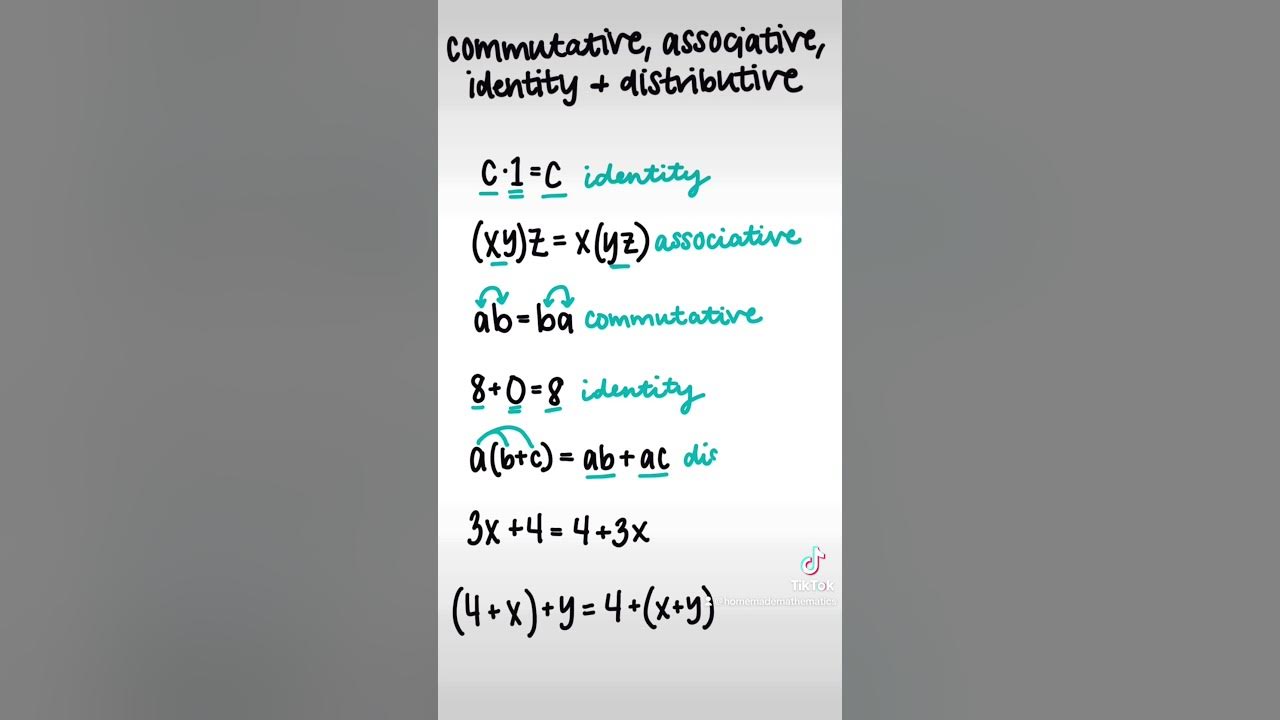 commutative, associative,
identity + distributive
c·1=c identity
(xy)z = x(yz) associative
ab=ba commutative
8+0=8 identity
a(b+c) = ab+ac dis
3x+4=4+3x
(4+x)+y=4+(x+y)
TikTok
@homemademathematics